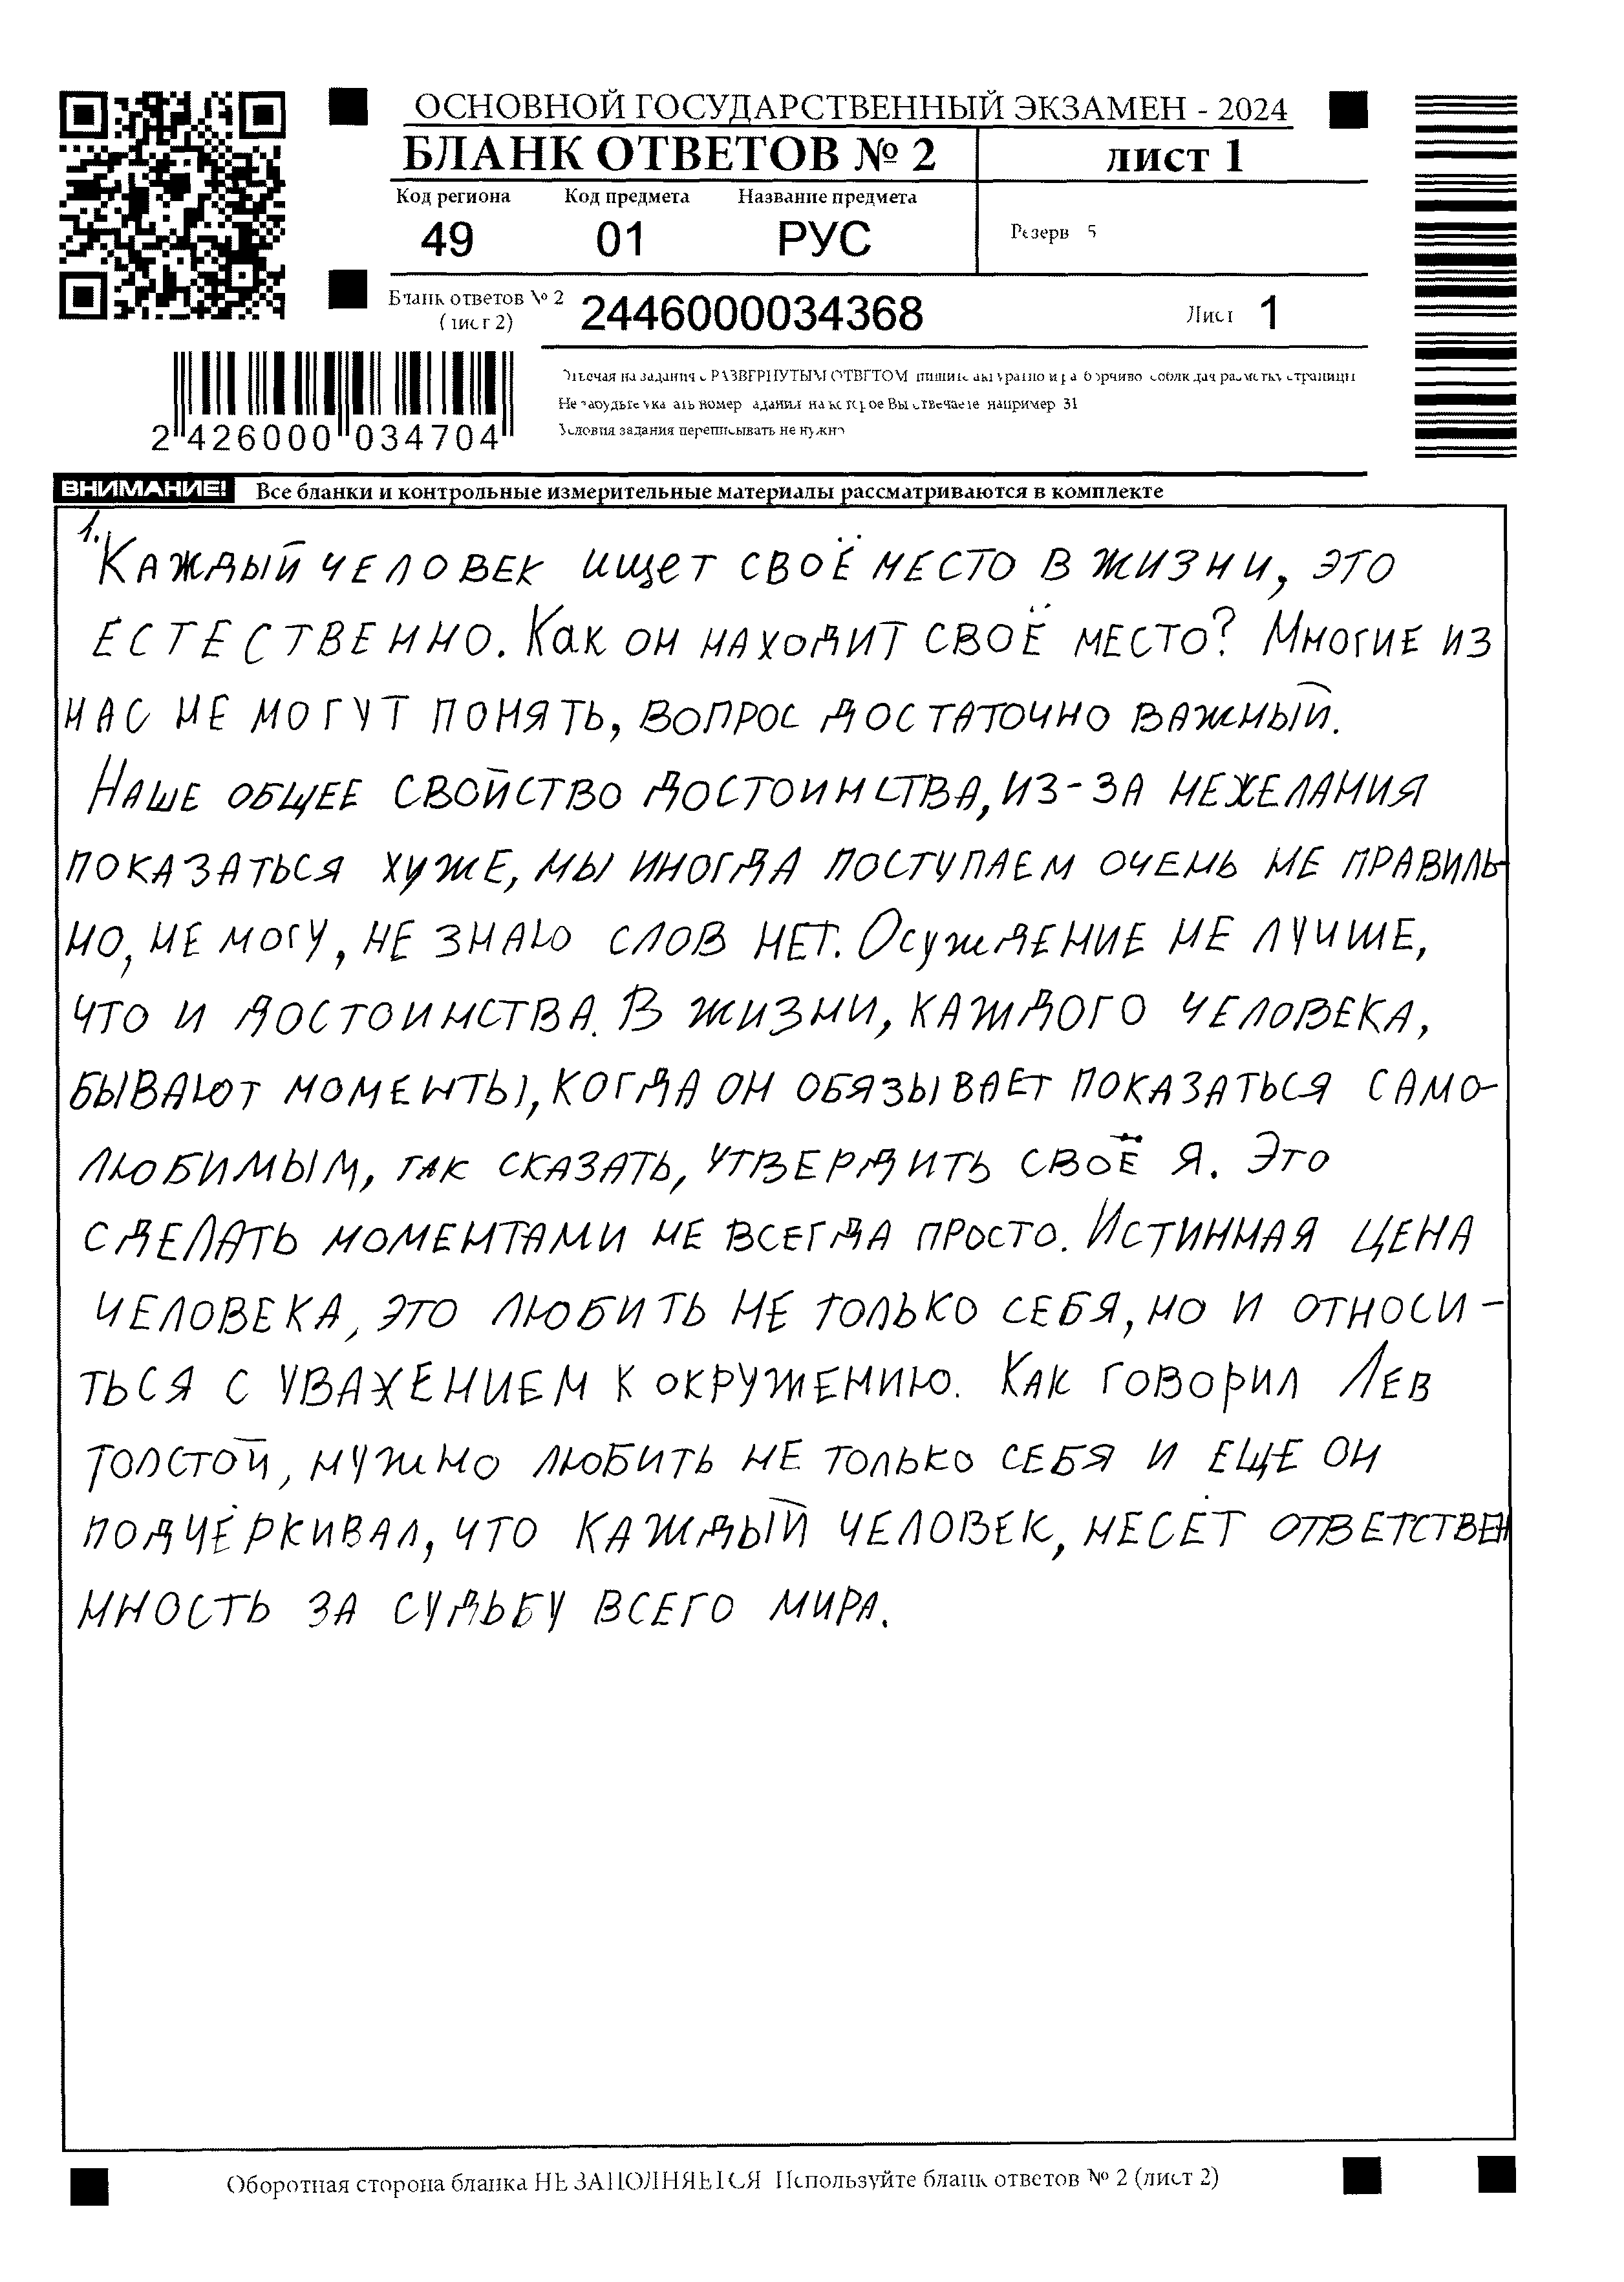 ОСНОВНОЙ ГОСУДАРСТВЕННЫЙ ЭКЗАМЕН - 2024
БЛАНК ОТВЕТОВ № 2 лист 1
Код региона Код предмета Название предмета
49 01 РУС Резерв 5
Бланк ответов № 2 (лист 2) 2446000034368 Лист 1
Отвечая на задания с РАЗВЕРНУТЫМ ОТВЕТОМ пишите аккуратно и разборчиво соблюдая разметку страницы
Не забудьте указать номер задания на которое Вы отвечаете например 31
Условия задания переписывать не нужно
2 426000 034704
ВНИМАНИЕ! Все бланки и контрольные измерительные материалы рассматриваются в комплекте
1.
Каждый человек ищет своё место в жизни, это
естественно. Как он находит своё место? Многие из
нас не могут понять, вопрос достаточно важный.
Наше общее свойство достоинства, из-за нежелания
показаться хуже, мы иногда поступаем очень не правиль-
но, не могу, не знаю слов нет. Осуждение не лучше,
что и достоинства. В жизни, каждого человека,
бывают моменты, когда он обязывает показаться само-
любимым, так сказать, утвердить своё я. Это
сделать моментами не всегда просто. Истинная цена
человека, это любить не только себя, но и относи-
ться с уважением к окружению. Как говорил Лев
Толстой, нужно любить не только себя и еще он
подчёркивал, что каждый человек, несёт ответствен
нность за судьбу всего мира.
Оборотная сторона бланка НЕ ЗАПОЛНЯЕТСЯ Используйте бланк ответов № 2 (лист 2)